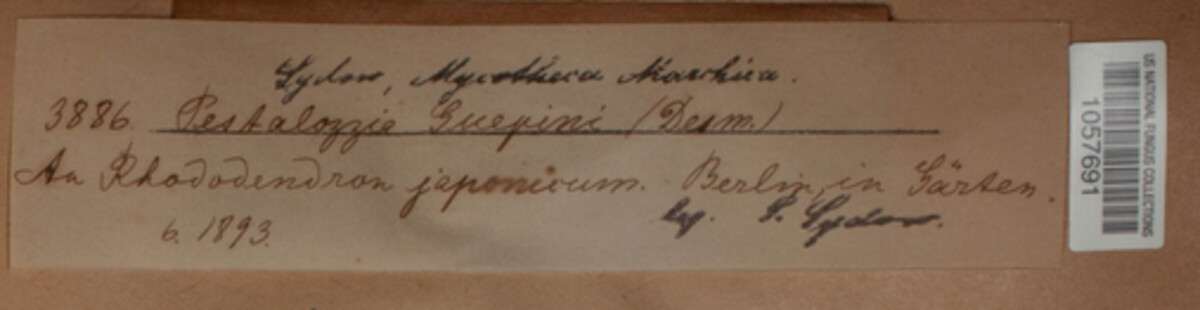 Sydow, Mycotheca Marchica.
3886. Pestalozzia Guepini (Desm.)
An Rhododendron japonicum. Berlin, in Gärten.
leg. P. Sydow.
6. 1893.
US NATIONAL FUNGUS COLLECTIONS
1057691